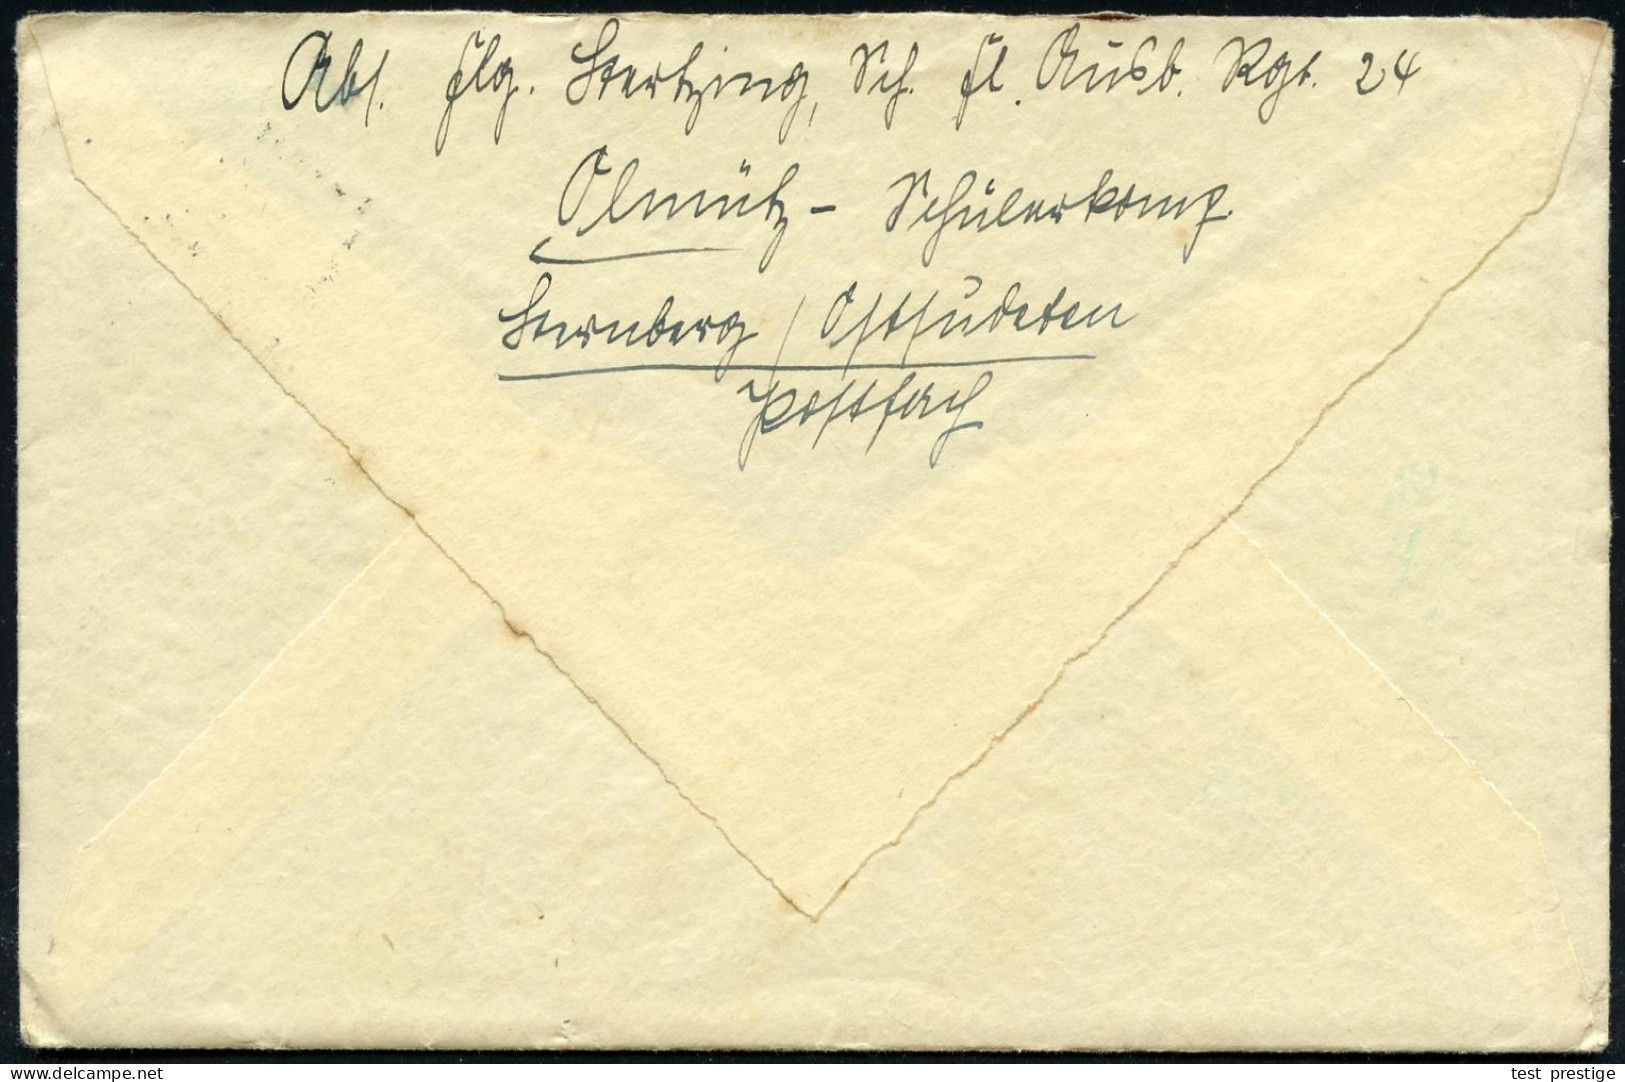 Abs. Flg. Stertzing, Sch. Fl. Ausb. Rgt. 24
Olmütz - Schülerkomp.
Sternberg / Ostsudeten
Postfach
delcampe.net
test_prestige